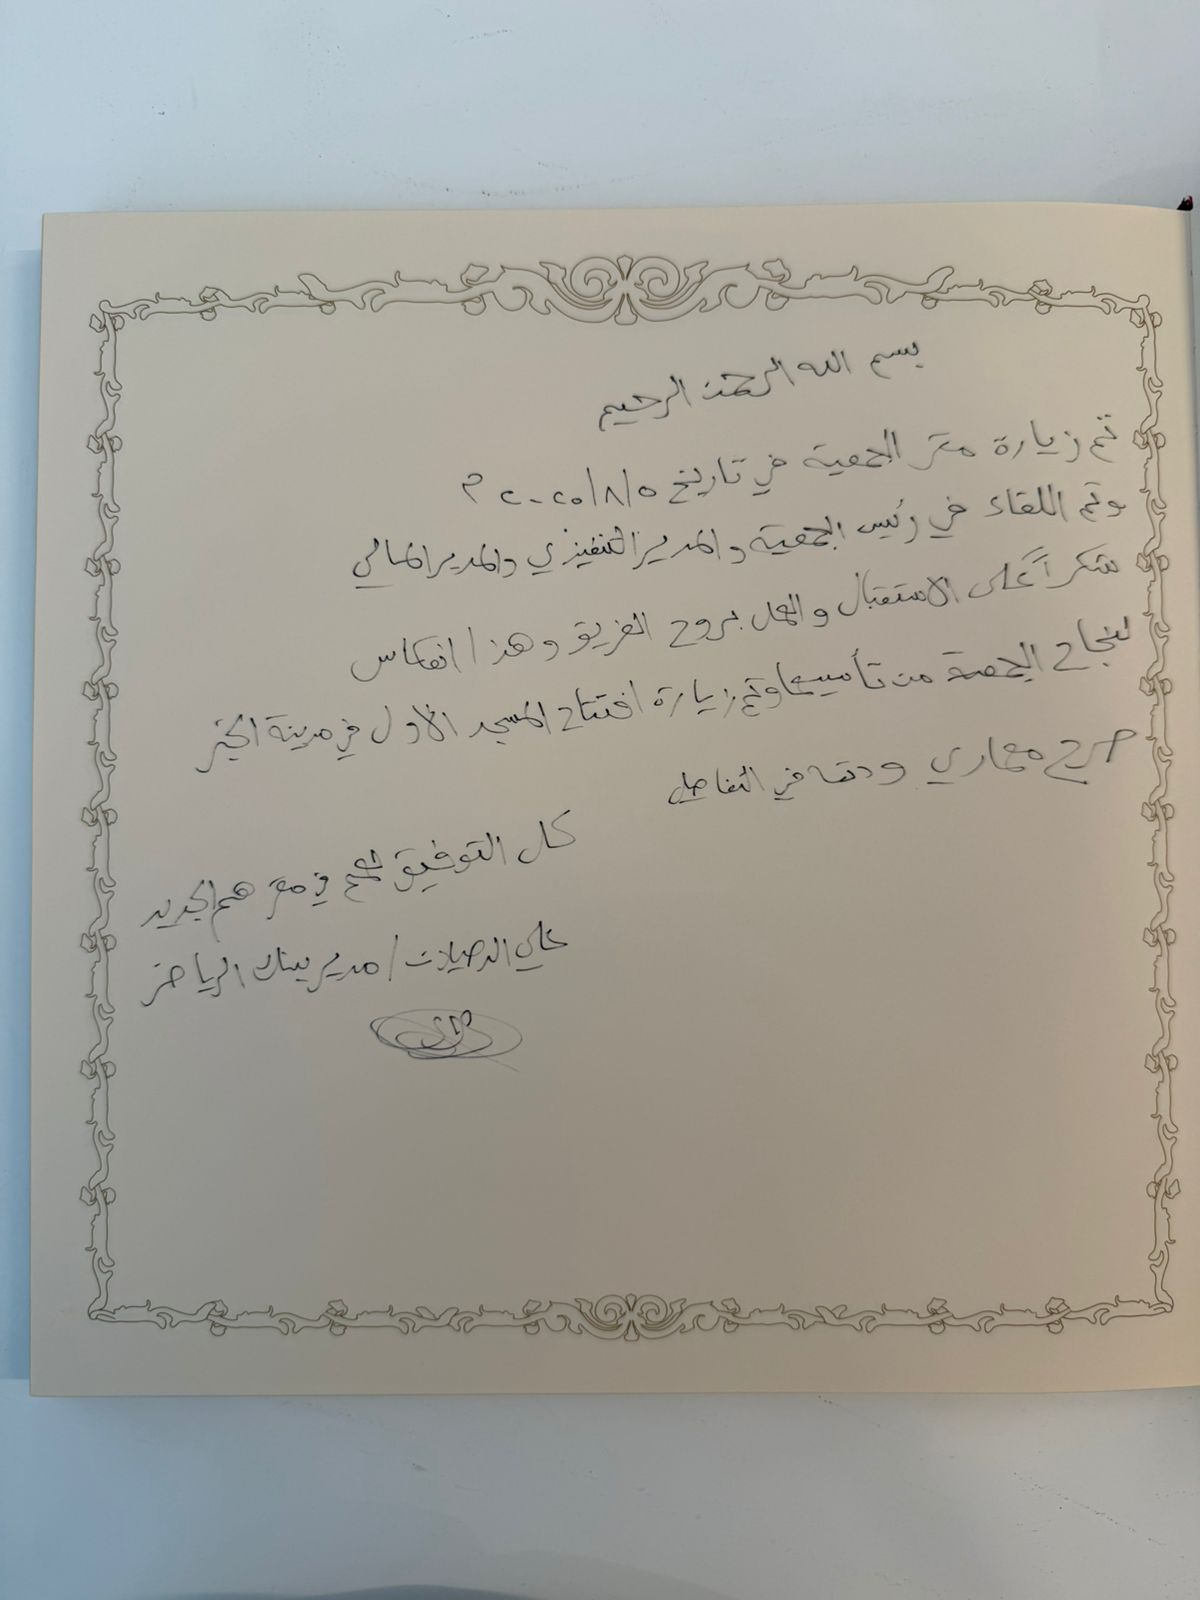 بسم الله الرحمن الرحيم
تم زيارة مقر الجمعية في تاريخ ٢٠٢٥/٨/٥ م
وتم اللقاء في رئيس الجمعية والمدير التنفيذي والمدير المالي
شكراً على الاستقبال والعمل بروح الفريق وهذا انعكاس
لنجاح الجمعية من تأسيسها وتم زيارة افتتاح المسجد الأول في مدينة الخبر
صرح معماري ودقه في التفاصيل
كل التوفيق لهم في مقرهم الجديد
علي / مدير بنك الرياض